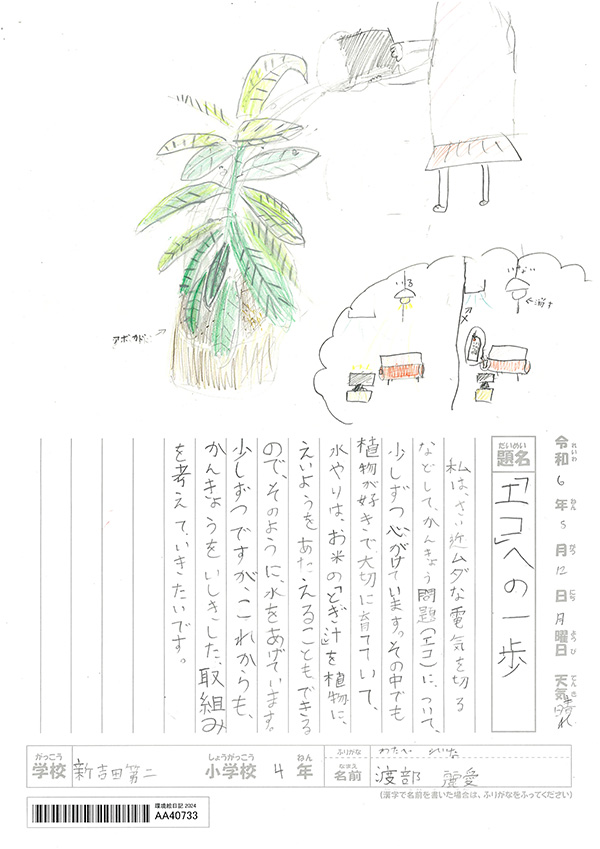 アボカド
いる
いない
消す
令和6年5月12日月曜日 天気晴れ
題名 「エコ」への一歩
私は、さい近ムダな電気を切る
などして、かんきょう問題(エコ)について、
少しずつ心がけています。その中でも
植物が好きで、大切に育てていて、
水やりは、お米の「とぎ汁」を植物に、
えいようをあたえることもできる
ので、そのように、水をあげています。
少しずつですが、これからも、
かんきょうをいしきした、取組み
を考えて、いきたいです。
学校 新吉田第二 小学校 4年 名前 渡部 麗愛
(漢字で名前を書いた場合は、ふりがなをふってください)
環境絵日記 2024
AA40733